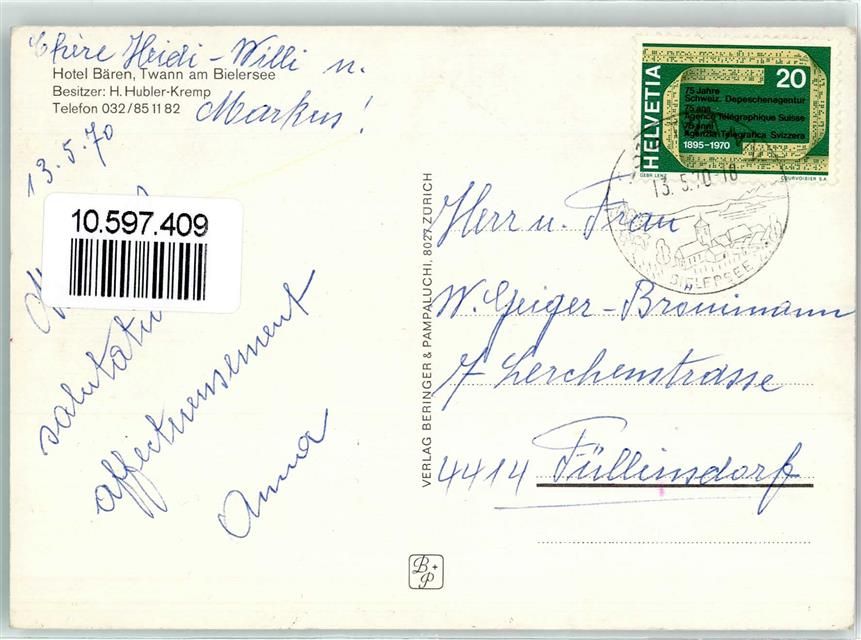 Chère Heidi - Willi u.
Hotel Bären, Twann am Bielersee
Besitzer: H. Hubler-Kremp
Telefon 032/85 11 82
Markus!
13.5.70
10.597.409
affectueusement
Anna
VERLAG BERINGER & PAMPALUCHI, 8027 ZÜRICH
B + P
HELVETIA
20
75 Jahre
Schweiz. Depeschenagentur
75 ans
Agence Télégraphique Suisse
75 anni
Agenzia Telegrafica Svizzera
1895-1970
GEBR LENZ
COURVOISIER S.A.
13.5.70-18
BIELERSEE
Herr u. Frau
W. Geiger - Brommann
7 Lerchenstrasse
4414 Füllinsdorf